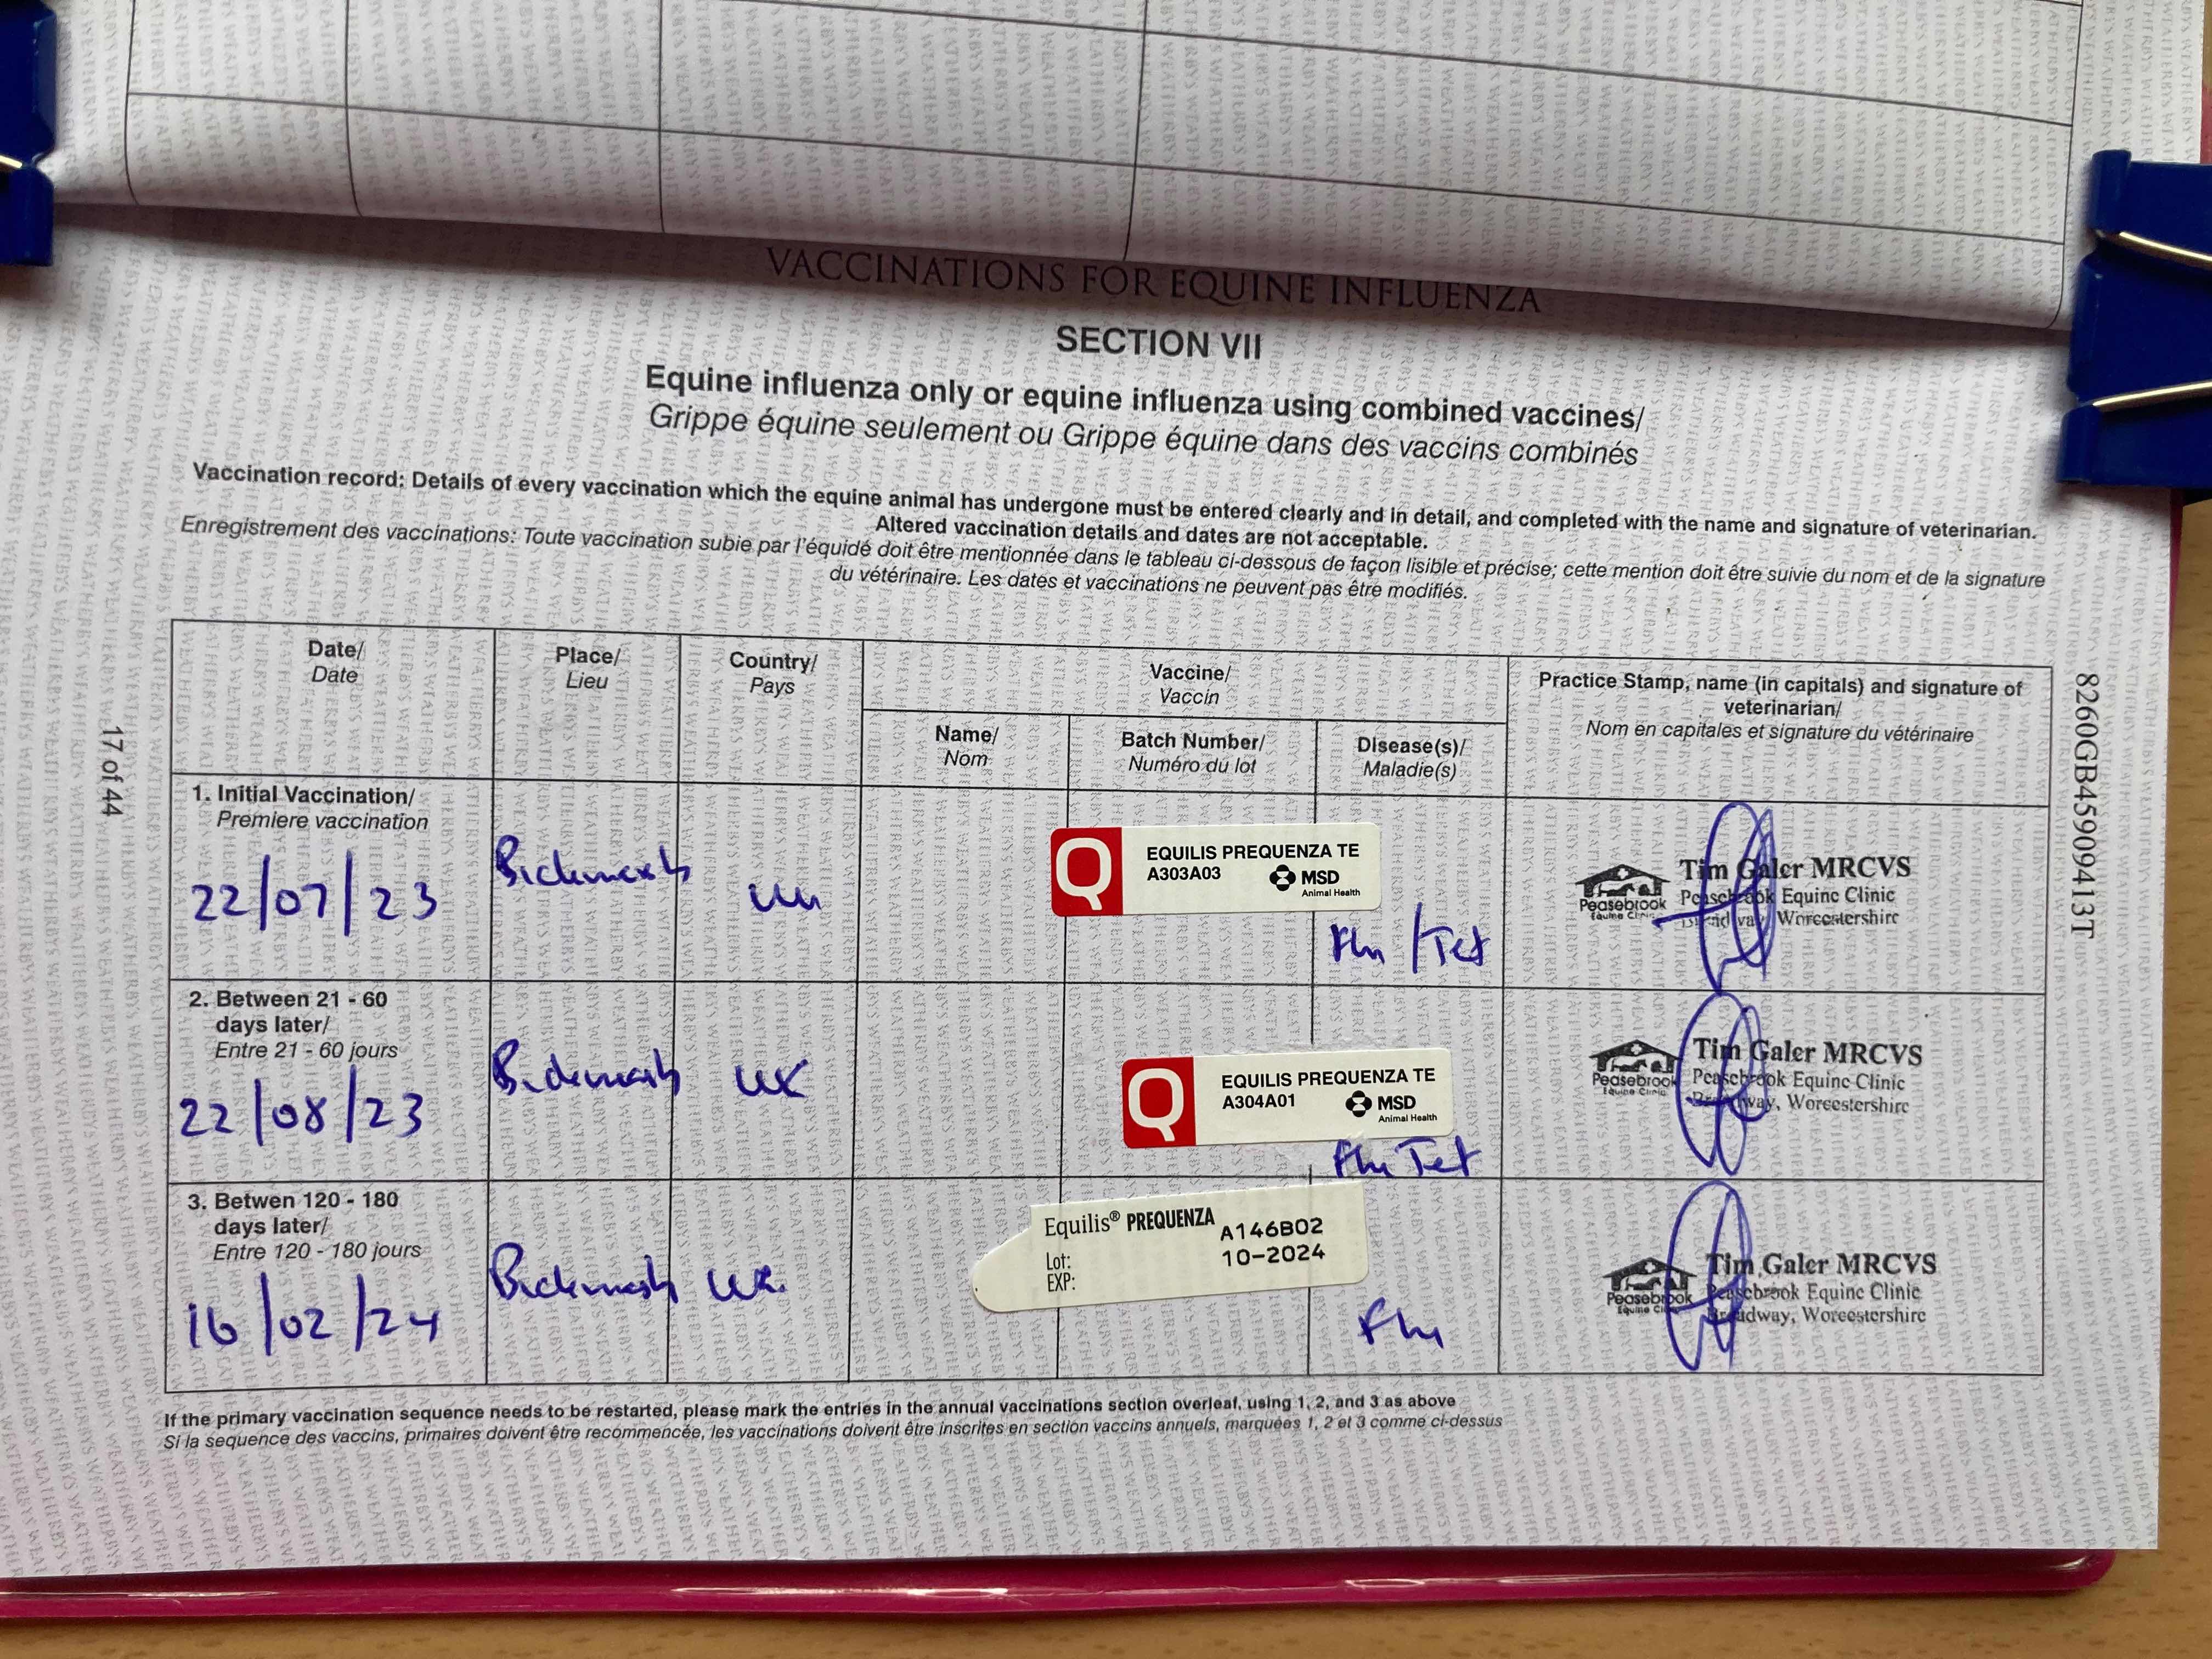 VACCINATIONS FOR EQUINE INFLUENZA
SECTION VII
Equine influenza only or equine influenza using combined vaccines/
Grippe équine seulement ou Grippe équine dans des vaccins combinés
Vaccination record: Details of every vaccination which the equine animal has undergone must be entered clearly and in detail, and completed with the name and signature of veterinarian.
Altered vaccination details and dates are not acceptable.
Enregistrement des vaccinations: Toute vaccination subie par l'équidé doit être mentionnée dans le tableau ci-dessous de façon lisible et précise; cette mention doit être suivie du nom et de la signature
du vétérinaire. Les dates et vaccinations ne peuvent pas être modifiés.
Date/
Date
Place/
Lieu
Country/
Pays
Vaccine/
Vaccin
Name/
Nom
Batch Number/
Numéro du lot
Disease(s)/
Maladie(s)
Practice Stamp, name (in capitals) and signature of
veterinarian/
Nom en capitales et signature du vétérinaire
1. Initial Vaccination/
Premiere vaccination
22/07/23
Bickmarsh
UK
Q
EQUILIS PREQUENZA TE
A303A03
MSD
Animal Health
Flu / Tet
Peasebrook
Equine Clinic
Tim Galer MRCVS
Peasebrook Equine Clinic
Broadway, Worcestershire
2. Between 21 - 60
days later/
Entre 21 - 60 jours
22/08/23
Bickmarsh
UK
Q
EQUILIS PREQUENZA TE
A304A01
MSD
Animal Health
Flu Tet
Peasebrook
Equine Clinic
Tim Galer MRCVS
Peasebrook Equine Clinic
Broadway, Worcestershire
3. Betwen 120 - 180
days later/
Entre 120 - 180 jours
16/02/24
Bickmarsh
UK
Equilis® PREQUENZA
A146B02
Lot:
10-2024
EXP:
Flu
Peasebrook
Equine Clinic
Tim Galer MRCVS
Peasebrook Equine Clinic
Broadway, Worcestershire
If the primary vaccination sequence needs to be restarted, please mark the entries in the annual vaccinations section overleaf, using 1, 2, and 3 as above
Si la sequence des vaccins, primaires doivent être recommencée, les vaccinations doivent être inscrites en section vaccins annuels, marquées 1, 2 et 3 comme ci-dessus
17 of 44
8260GB45909413T